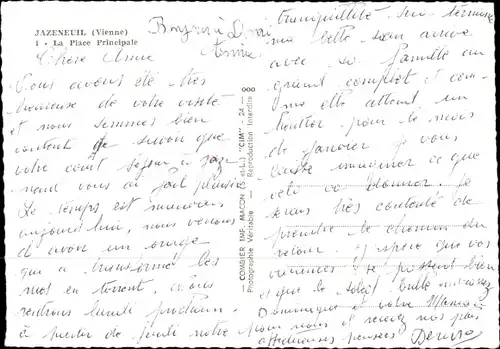 JAZENEUIL (Vienne)
1 - La Place Principale
Chère Anne
Nous avons été très
heureuse de votre visite
et nous sommes bien
content de savoir que
votre court séjour à Jaze
neuil vous a fait plaisir
Le temps est mauvais
aujourd'hui, nous venons
d'avoir un orage
qui a transformé les
rues en torrent. Nous
rentrons lundi prochain
à partir de jeudi notre
000
COMBIER IMP. MACON (S.-et-L.) "CIM"
Photographie Véritable - Reproduction Interdite
tranquillité sera terminée
ma belle-sœur arrive
avec sa famille au
grand complet et com-
me elle attend un
héritier pour le mois
de janvier je vous
laisse imaginer ce que
cela va donner. Je
serais très contente de
prendre le chemin du
retour. J'espère que vos
vacances se passent bien
et que le soleil brille
Dominique et votre Maman
pour nous et recevez nos plus
affectueuses pensées Denise